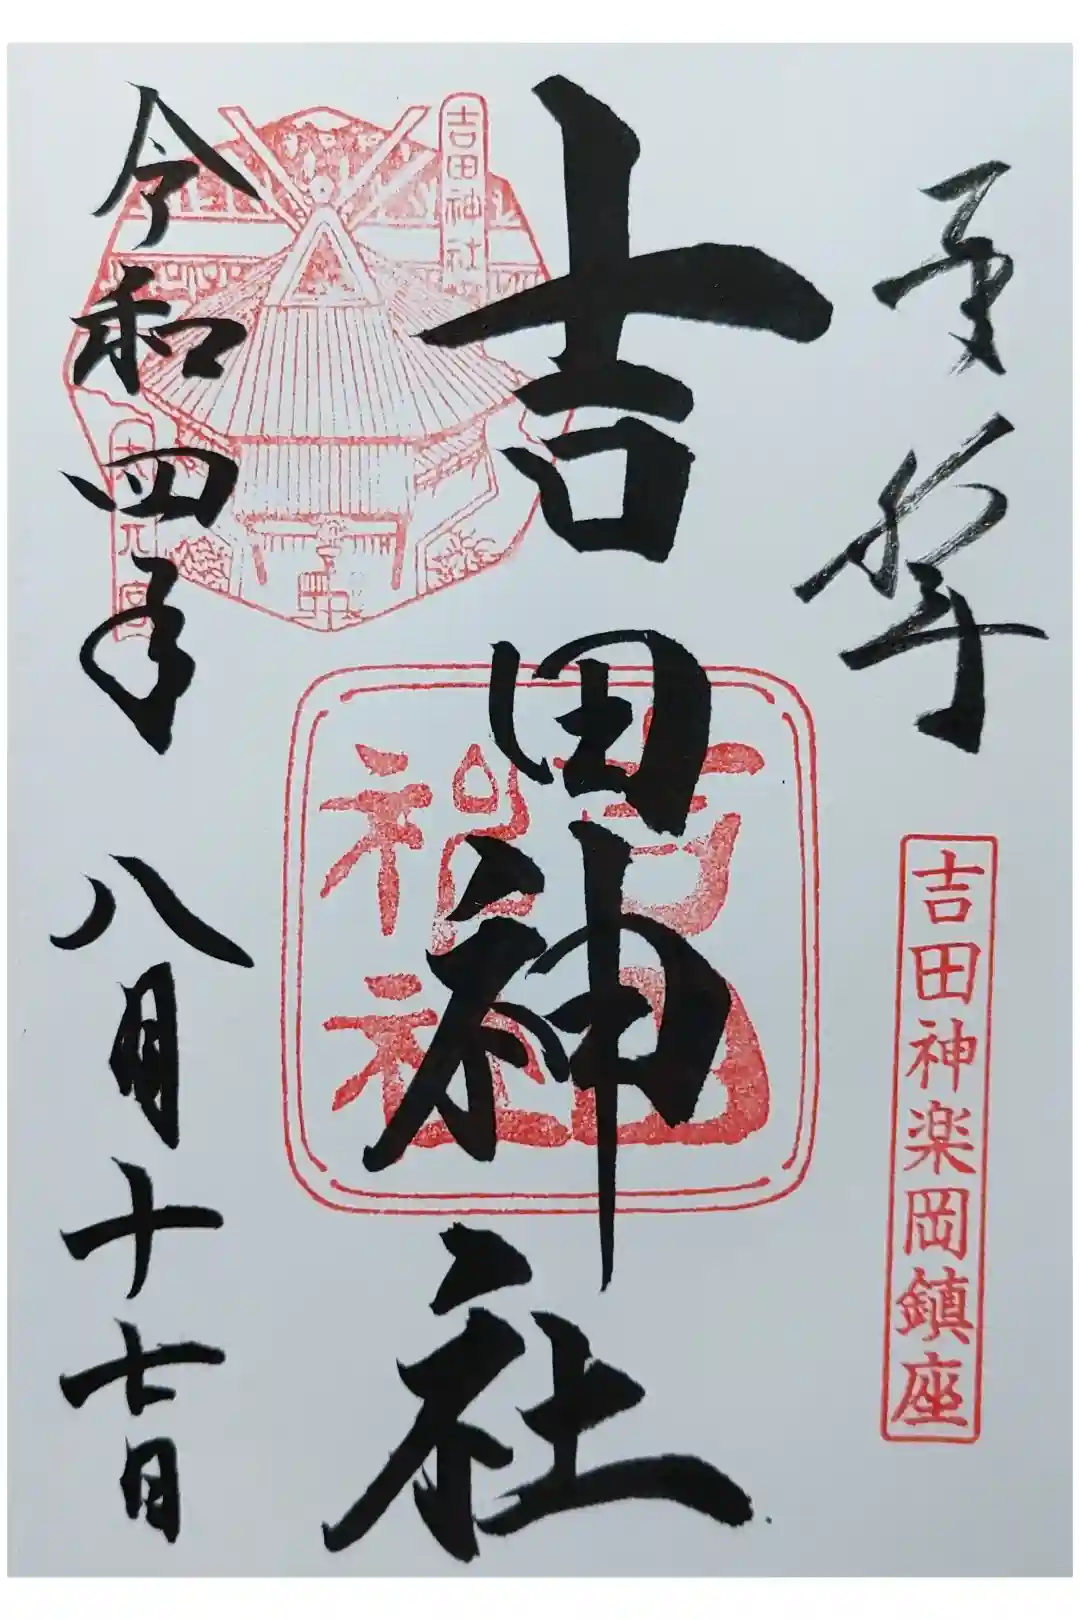 奉拝
吉田神楽岡鎮座
吉田神社
吉田神社
吉田神社
大元宮
令和四年
八月十七日